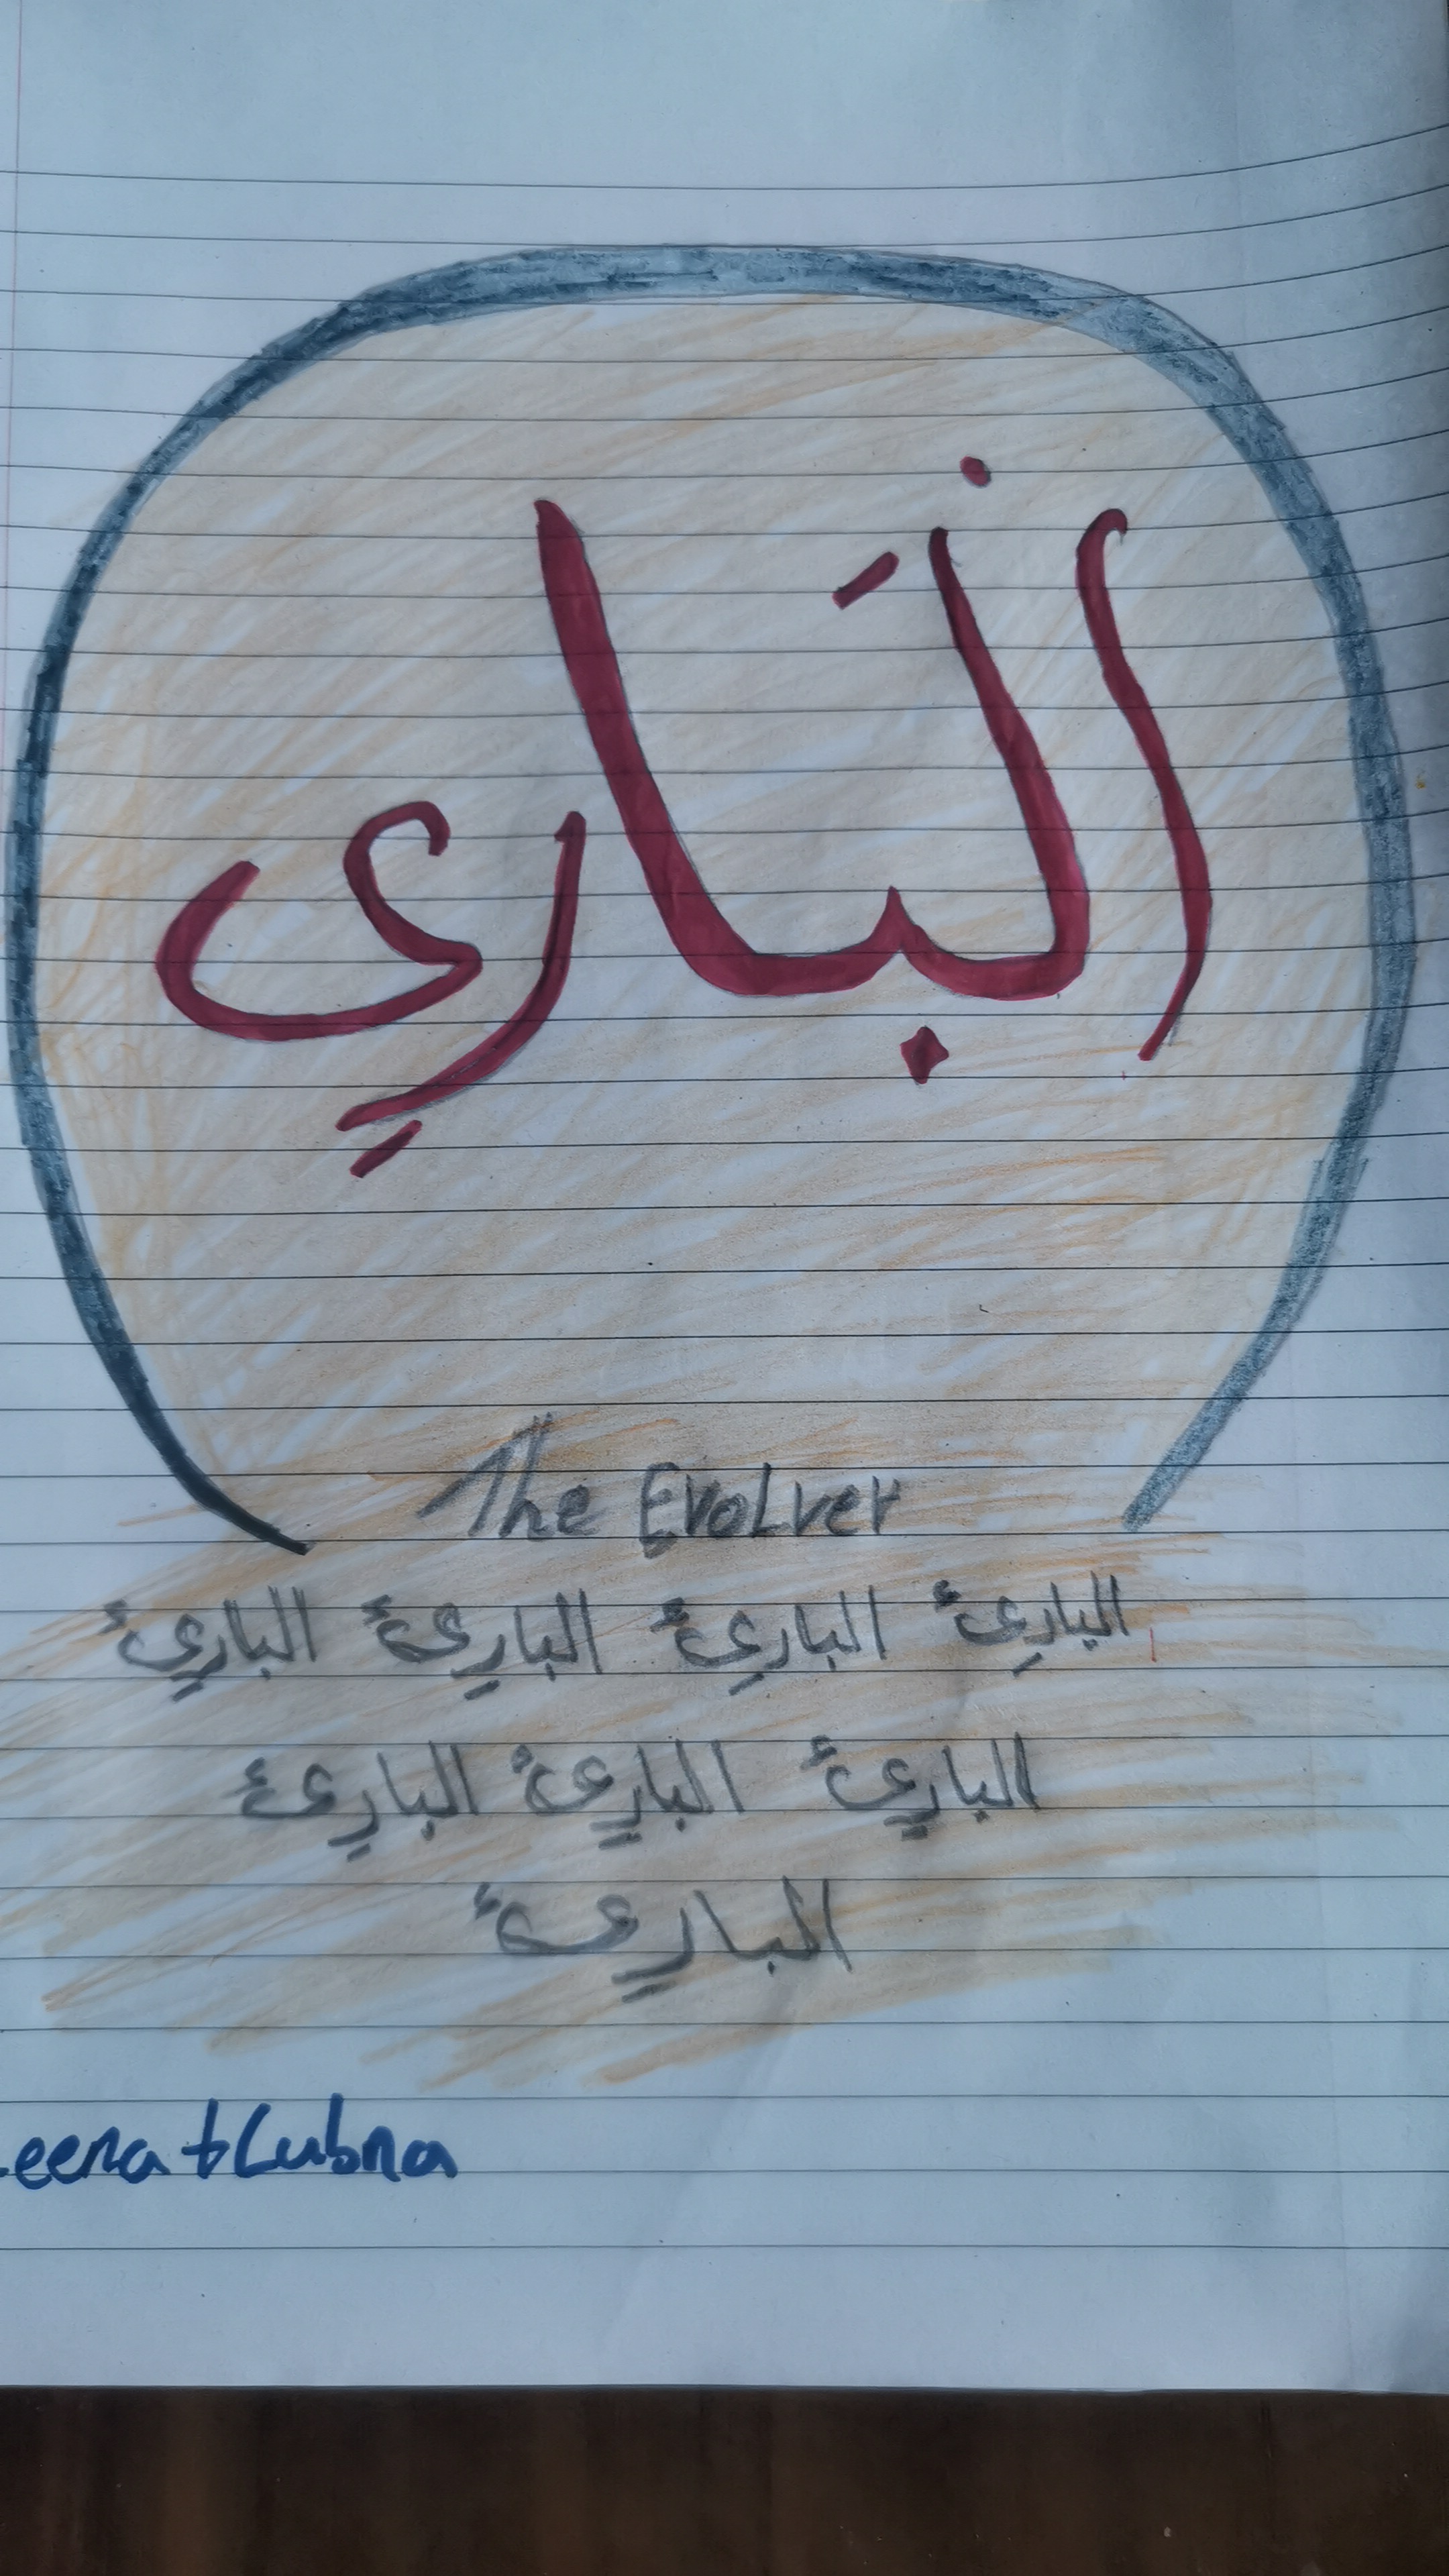 البَارِى
The Evolver
البارِئُ البارِئُ البارِئُ البارِئُ
البارِئُ البارِئُ البارِئ
البارِئُ
eena + Lubna